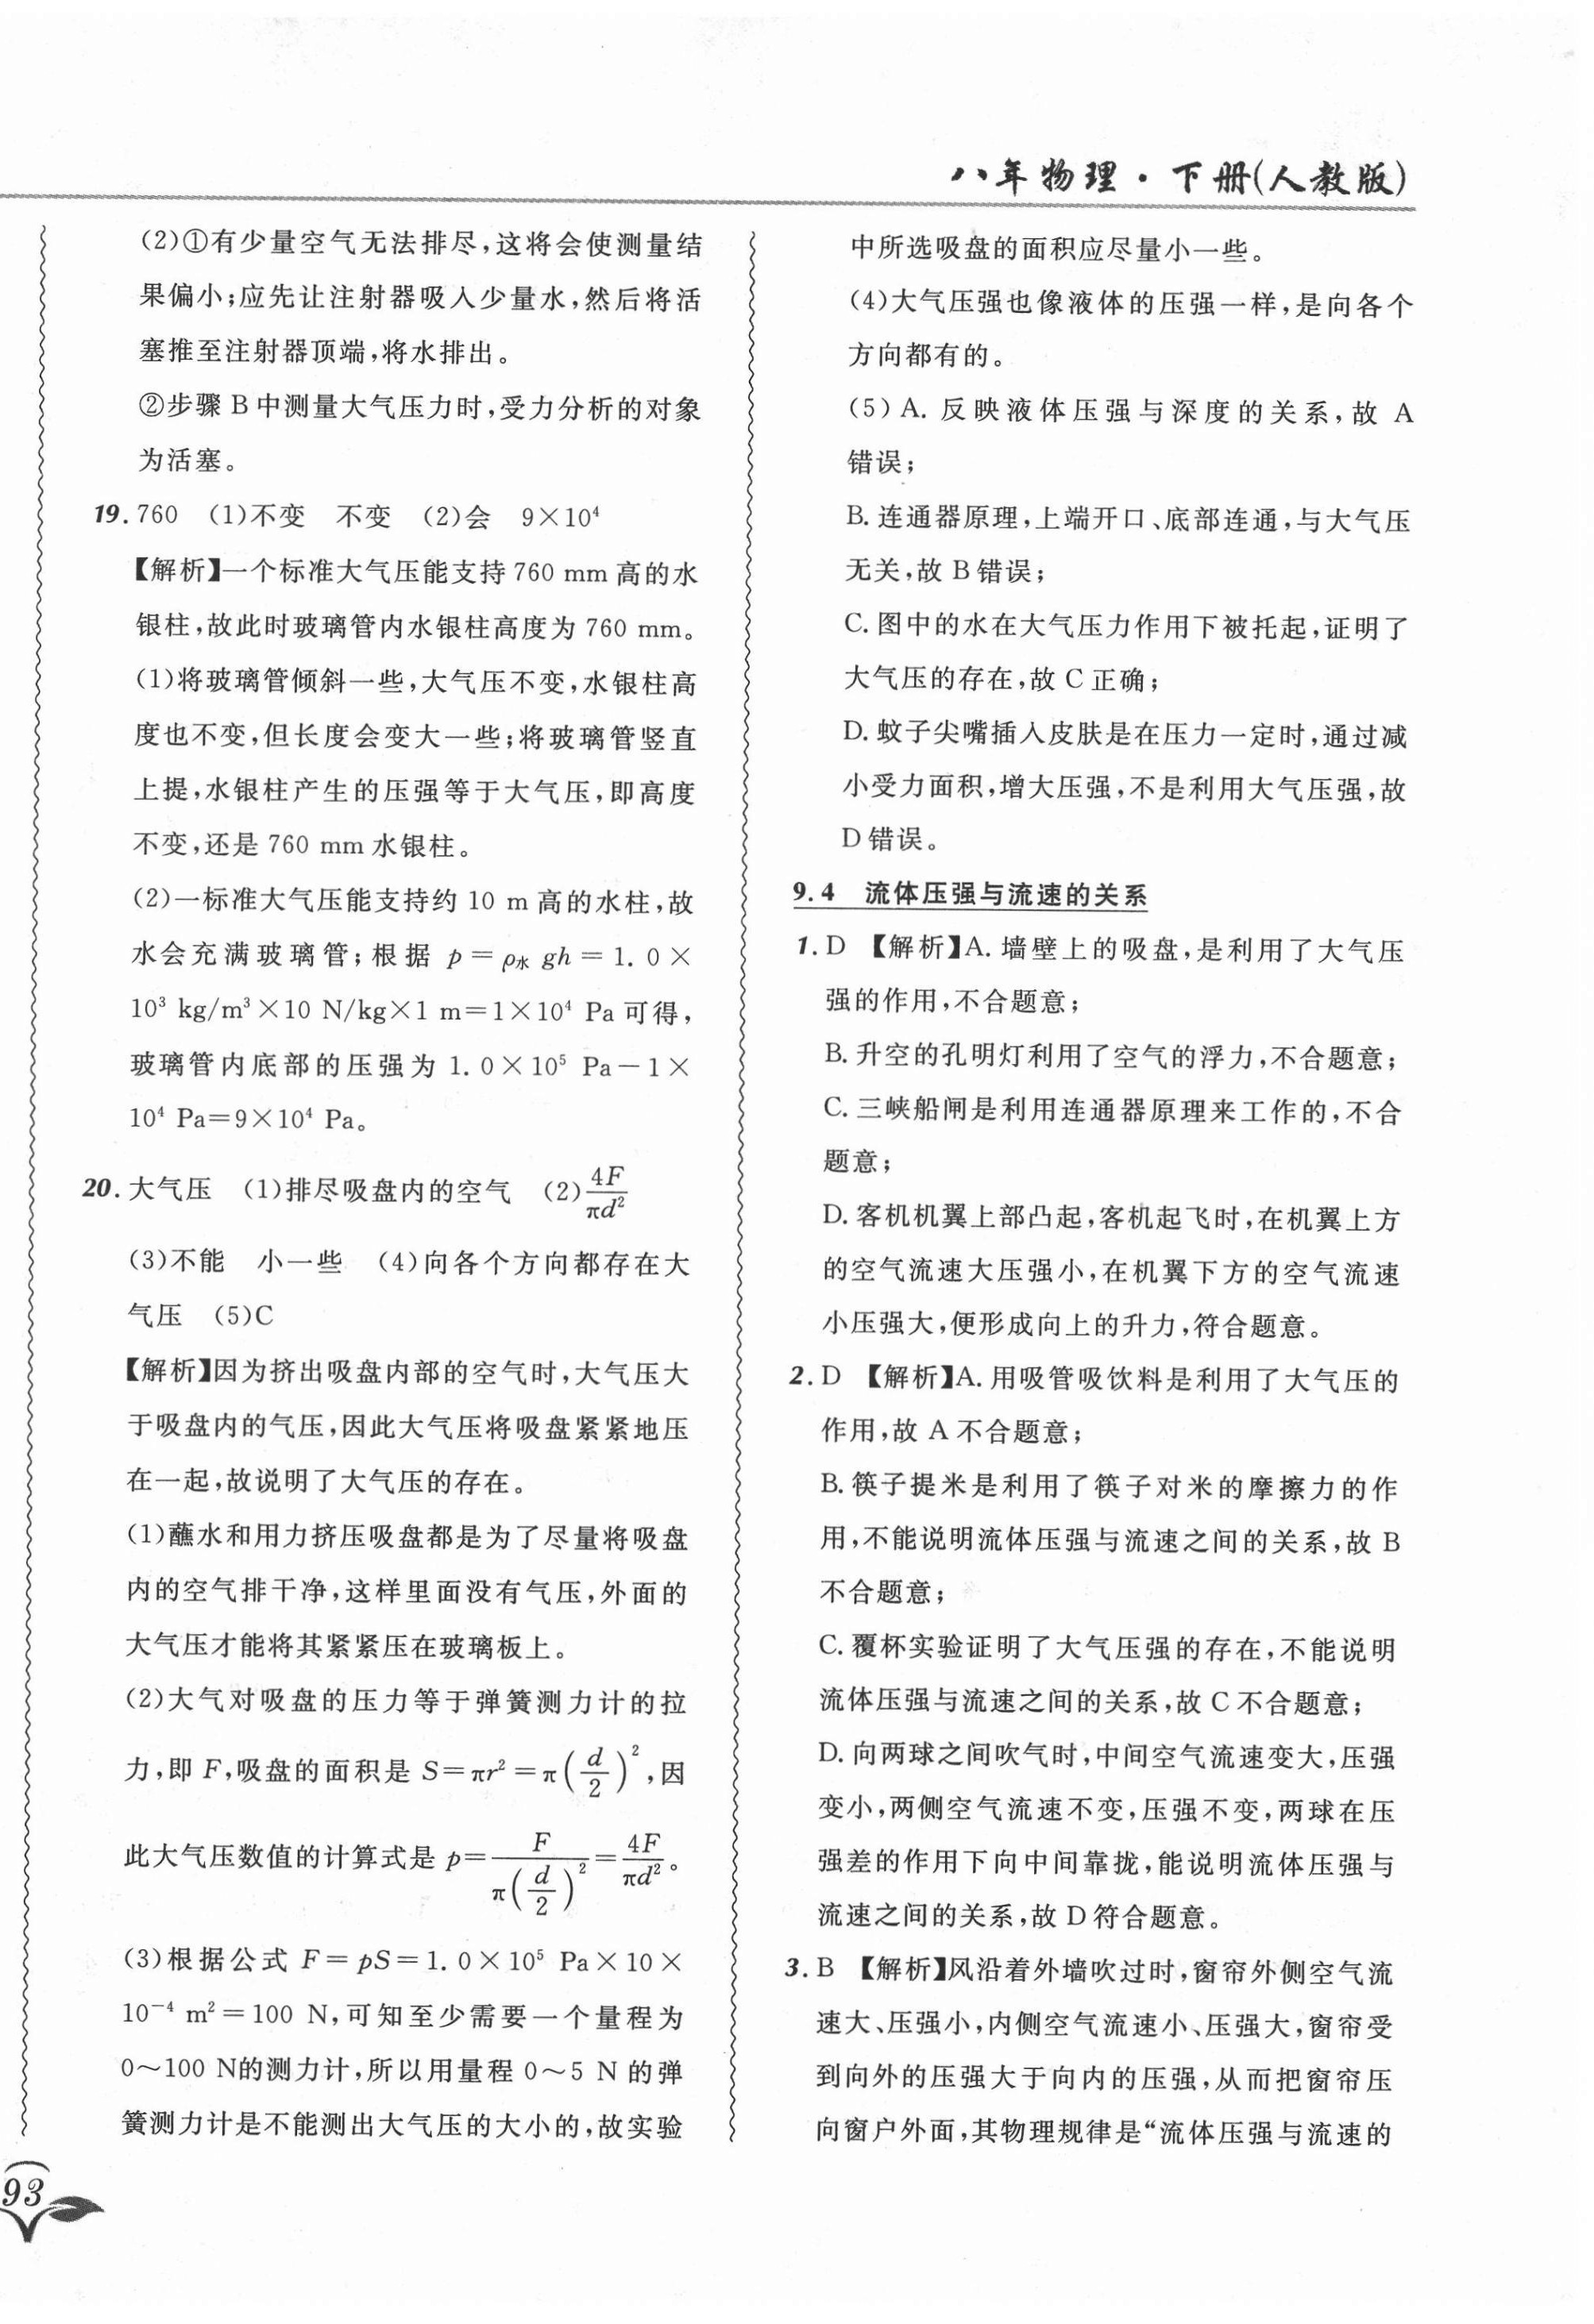 八年物理·下册(人教版)
(2)①有少量空气无法排尽,这将会使测量结
果偏小;应先让注射器吸入少量水,然后将活
塞推至注射器顶端,将水排出。
②步骤 B 中测量大气压力时,受力分析的对象
为活塞。
19. 760 (1)不变 不变 (2)会 9×10⁴
【解析】一个标准大气压能支持 760 mm 高的水
银柱,故此时玻璃管内水银柱高度为 760 mm。
(1)将玻璃管倾斜一些,大气压不变,水银柱高
度也不变,但长度会变大一些;将玻璃管竖直
上提,水银柱产生的压强等于大气压,即高度
不变,还是 760 mm 水银柱。
(2)一标准大气压能支持约 10 m 高的水柱,故
水会充满玻璃管;根据 p=ρ水 gh=1.0×
10³ kg/m³×10 N/kg×1 m=1×10⁴ Pa 可得,
玻璃管内底部的压强为 1.0×10⁵ Pa-1×
10⁴ Pa=9×10⁴ Pa。
20. 大气压 (1)排尽吸盘内的空气 (2)4F/πd²
(3)不能 小一些 (4)向各个方向都存在大
气压 (5)C
【解析】因为挤出吸盘内部的空气时,大气压大
于吸盘内的气压,因此大气压将吸盘紧紧地压
在一起,故说明了大气压的存在。
(1)蘸水和用力挤压吸盘都是为了尽量将吸盘
内的空气排干净,这样里面没有气压,外面的
大气压才能将其紧紧压在玻璃板上。
(2)大气对吸盘的压力等于弹簧测力计的拉
力,即 F,吸盘的面积是 S=πr²=π(d/2)²,因
此大气压数值的计算式是 p=F/π(d/2)²=4F/πd²。
(3)根据公式 F=pS=1.0×10⁵ Pa×10×
10⁻⁴ m²=100 N,可知至少需要一个量程为
0~100 N的测力计,所以用量程 0~5 N 的弹
簧测力计是不能测出大气压的大小的,故实验
93
中所选吸盘的面积应尽量小一些。
(4)大气压强也像液体的压强一样,是向各个
方向都有的。
(5)A. 反映液体压强与深度的关系,故 A
错误;
B. 连通器原理,上端开口、底部连通,与大气压
无关,故 B 错误;
C. 图中的水在大气压力作用下被托起,证明了
大气压的存在,故 C 正确;
D. 蚊子尖嘴插入皮肤是在压力一定时,通过减
小受力面积,增大压强,不是利用大气压强,故
D 错误。
9.4 流体压强与流速的关系
1. D 【解析】A. 墙壁上的吸盘,是利用了大气压
强的作用,不合题意;
B. 升空的孔明灯利用了空气的浮力,不合题意;
C. 三峡船闸是利用连通器原理来工作的,不合
题意;
D. 客机机翼上部凸起,客机起飞时,在机翼上方
的空气流速大压强小,在机翼下方的空气流速
小压强大,便形成向上的升力,符合题意。
2. D 【解析】A. 用吸管吸饮料是利用了大气压的
作用,故 A 不合题意;
B. 筷子提米是利用了筷子对米的摩擦力的作
用,不能说明流体压强与流速之间的关系,故 B
不合题意;
C. 覆杯实验证明了大气压强的存在,不能说明
流体压强与流速之间的关系,故 C 不合题意;
D. 向两球之间吹气时,中间空气流速变大,压强
变小,两侧空气流速不变,压强不变,两球在压
强差的作用下向中间靠拢,能说明流体压强与
流速之间的关系,故 D 符合题意。
3. B 【解析】风沿着外墙吹过时,窗帘外侧空气流
速大、压强小,内侧空气流速小、压强大,窗帘受
到向外的压强大于向内的压强,从而把窗帘压
向窗户外面,其物理规律是“流体压强与流速的